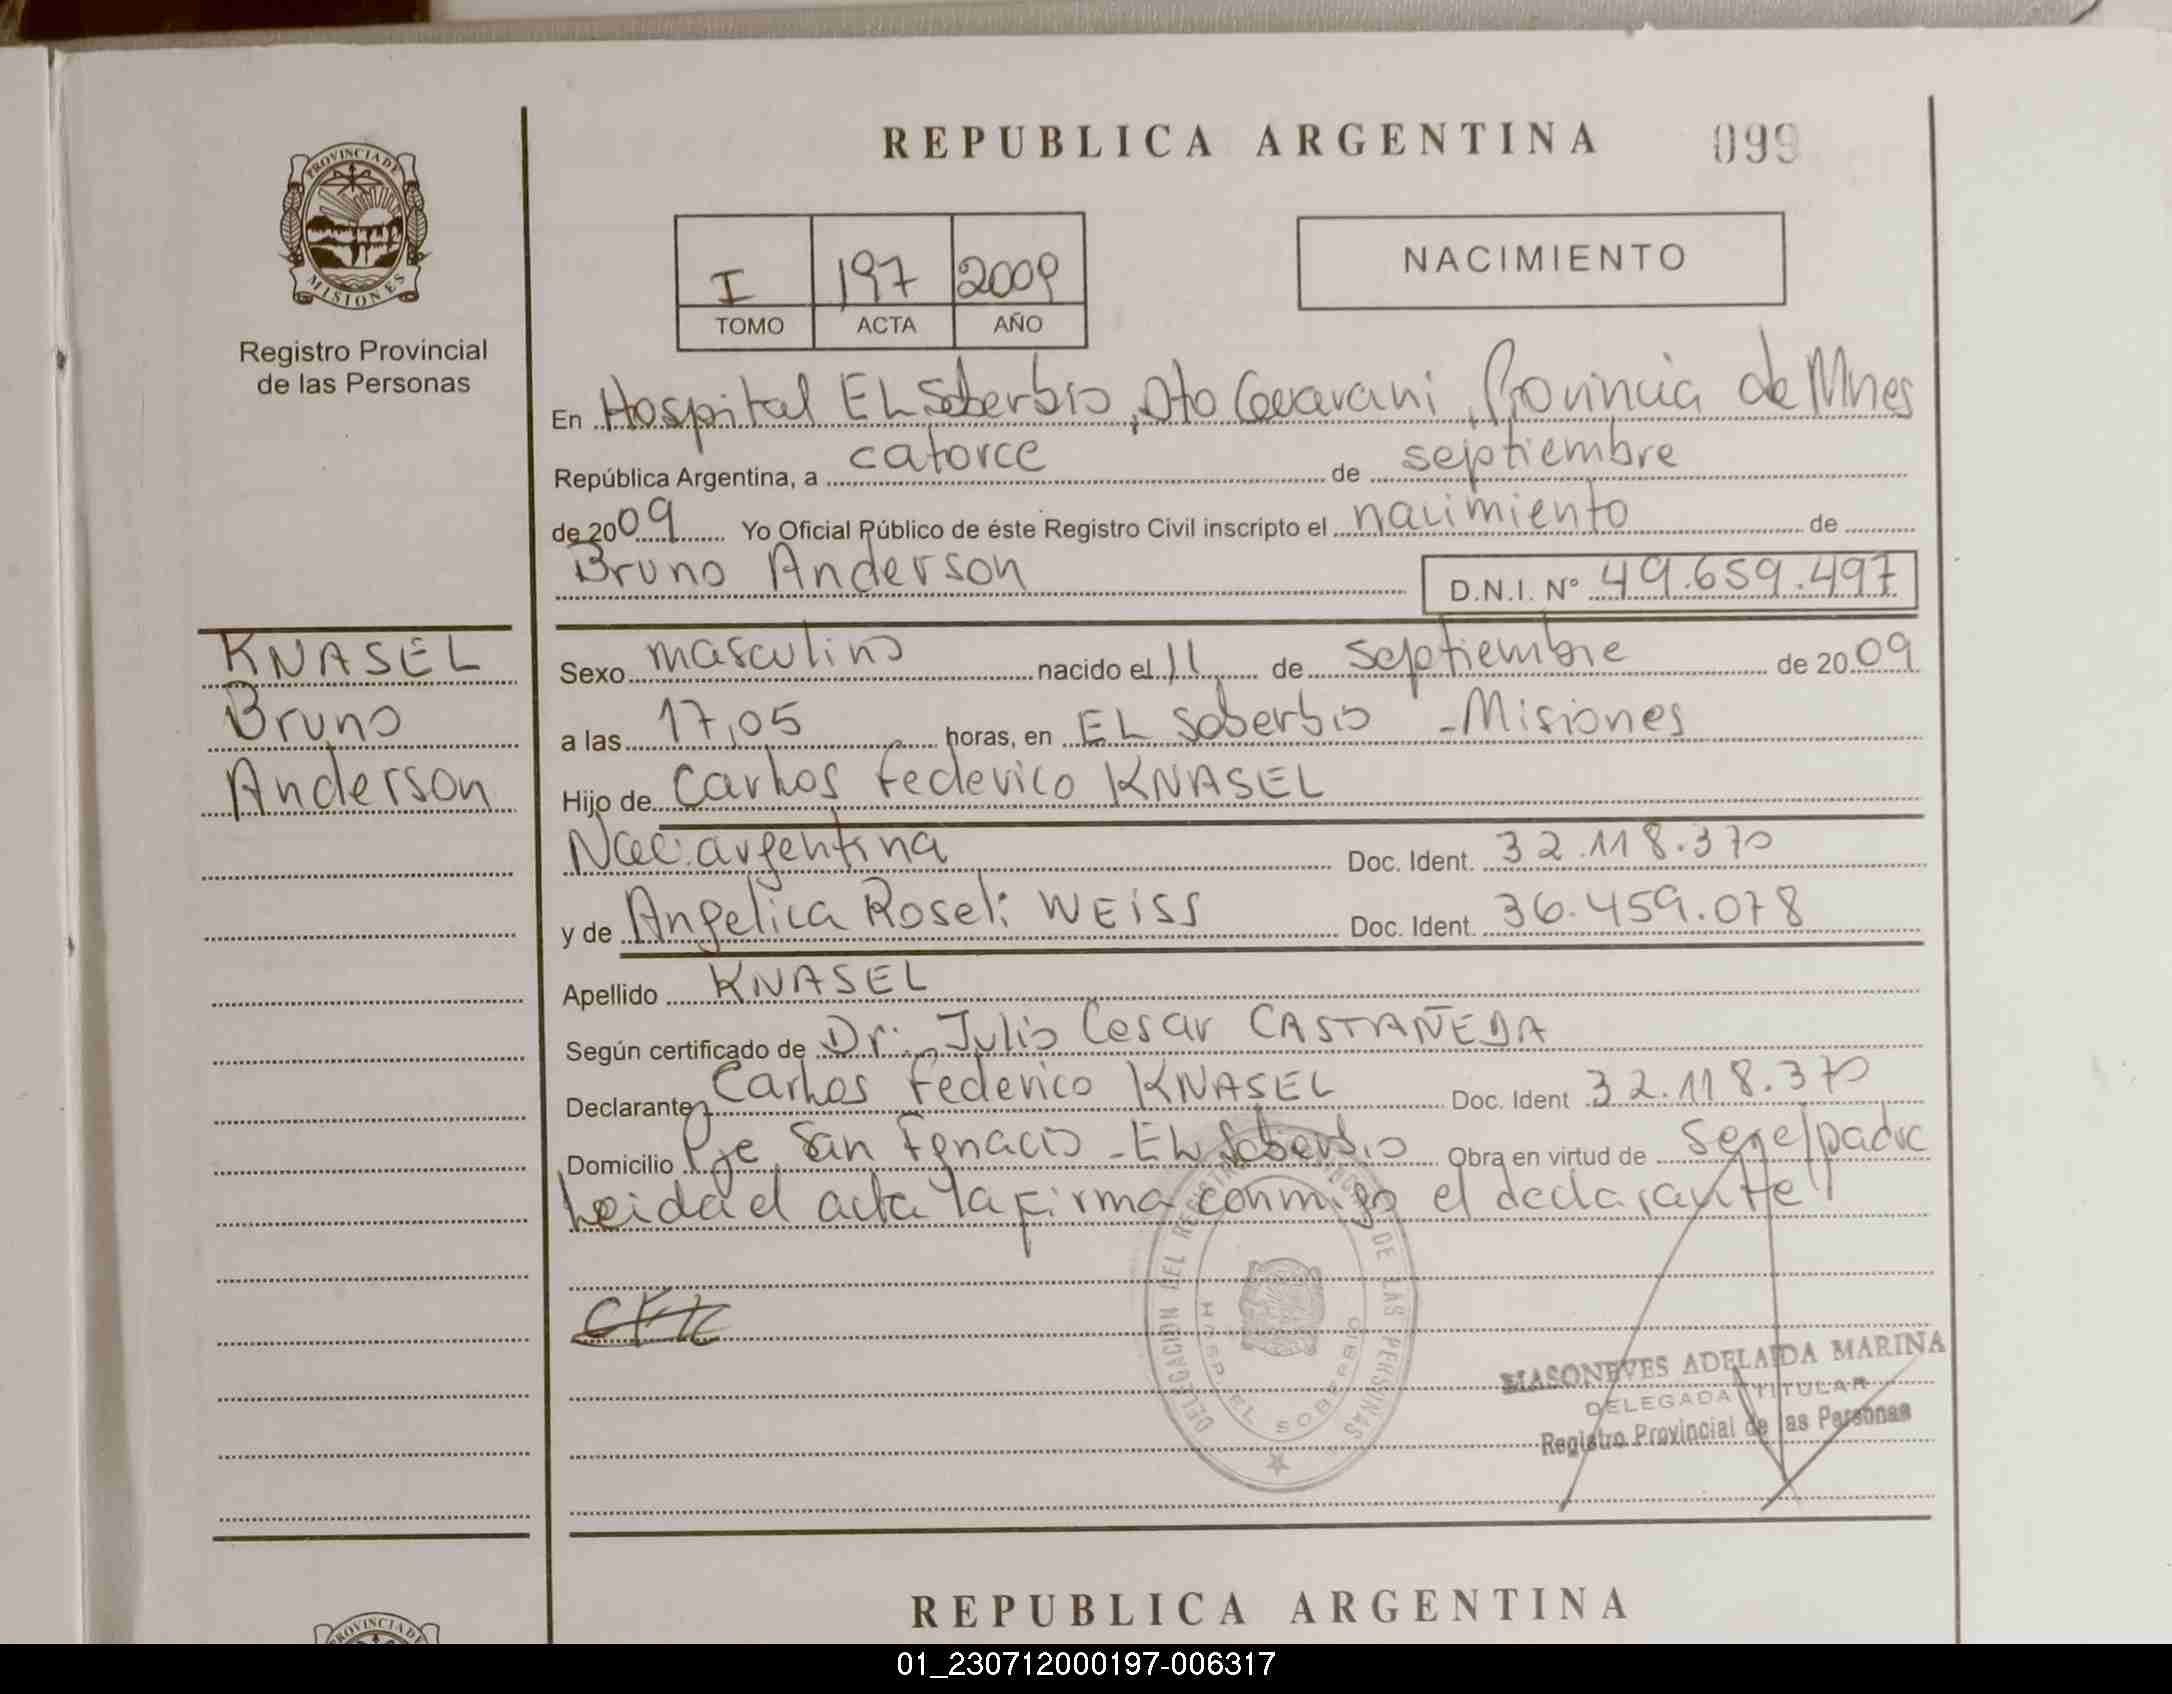 REPUBLICA ARGENTINA 099
PROVINCIA DE
MISIONES
Registro Provincial
de las Personas
I 197 2009
TOMO ACTA AÑO
NACIMIENTO
En Hospital EL Soberbio, Dto Guarani, Provincia de Mnes
República Argentina, a catorce de septiembre
de 2009 Yo Oficial Público de éste Registro Civil inscripto el nacimiento de
Bruno Anderson D.N.I. Nº 49.659.497
KNASEL
Bruno
Anderson
Sexo masculino nacido el 11 de septiembre de 2009
a las 17,05 horas, en EL Soberbio - Misiones
Hijo de Carlos Federico KNASEL
Nac. argentina Doc. Ident. 32.118.370
y de Angelica Roseli WEISS Doc. Ident. 36.459.078
Apellido KNASEL
Según certificado de Dr. Julio Cesar CASTAÑEDA
Declarante Carlos Federico KNASEL Doc. Ident 32.118.370
Domicilio Pje San Ignacio - EL Soberbio Obra en virtud de ser el padre
Leida el acta la firma conmigo el declarante
DELEGACION DEL REGISTRO DE LAS PERSONAS
HOSP. EL SOBERBIO
MASONEVES ADELAIDA MARINA
DELEGADA TITULAR
Registro Provincial de las Personas
REPUBLICA ARGENTINA
PROVINCIA D
01_230712000197-006317